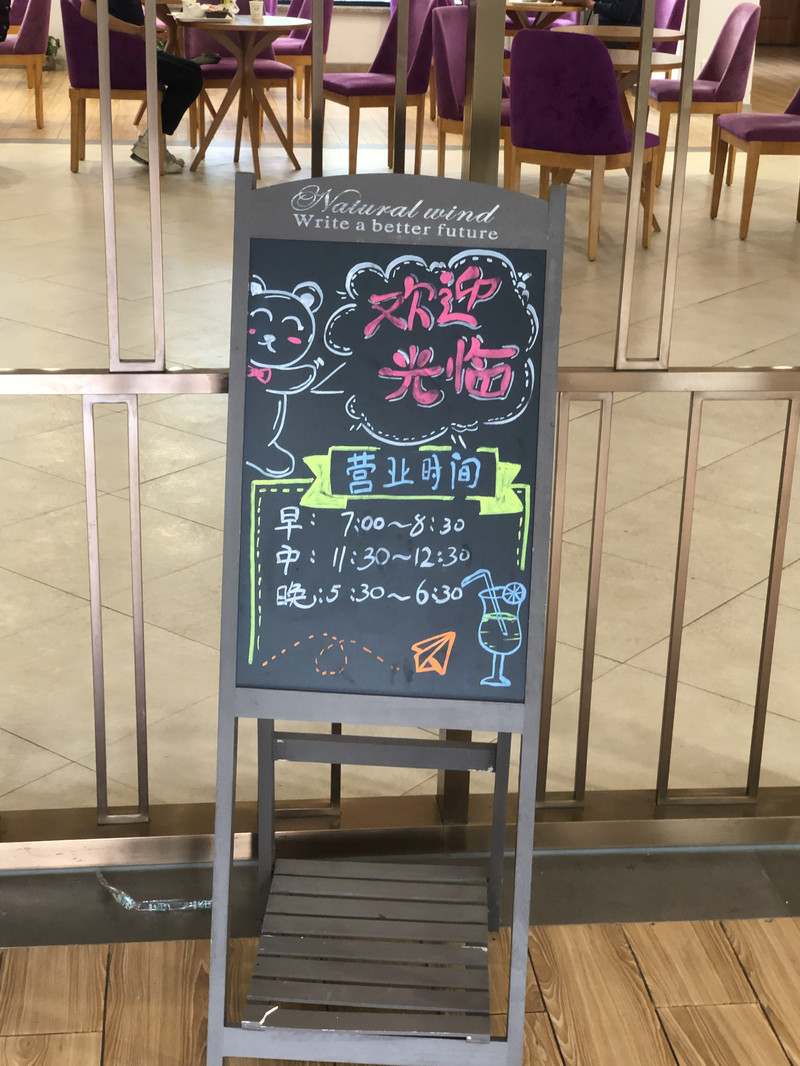 Natural wind
Write a better future
欢迎
光临
营业时间
早: 7:00~8:30
中: 11:30~12:30
晚:5:30~6:30